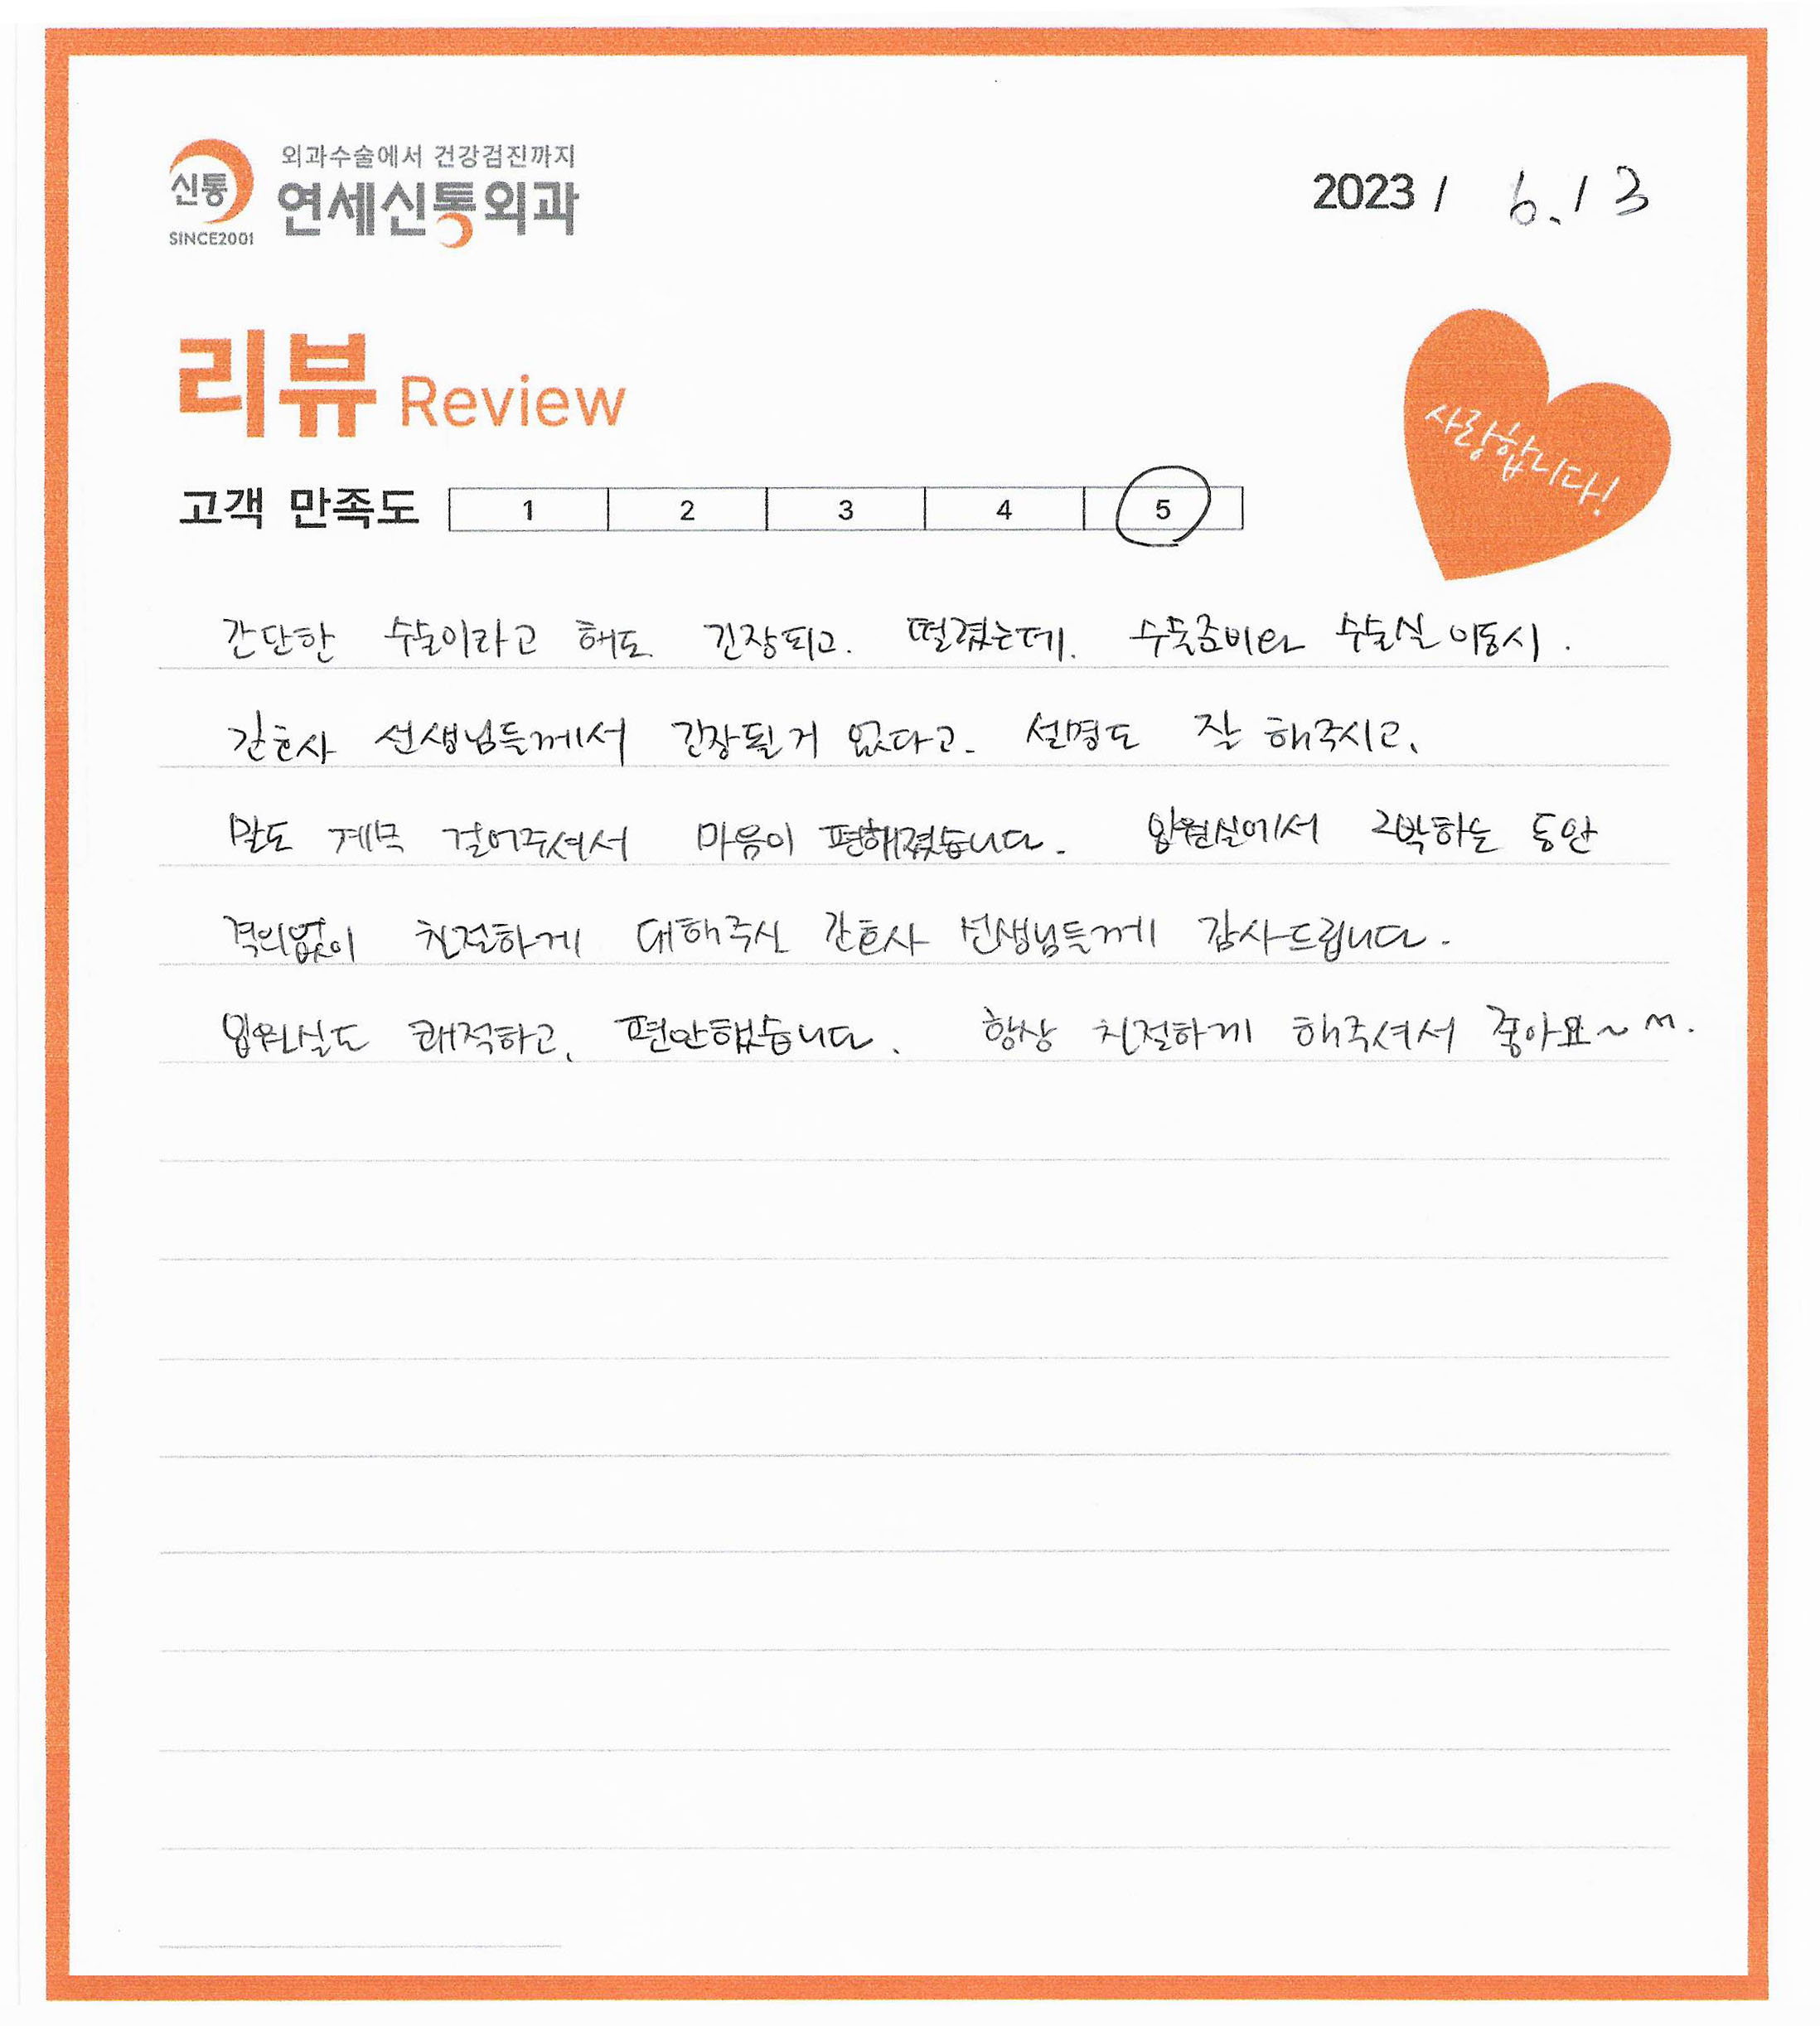 외과수술에서 건강검진까지
신통
연세신통외과
SINCE2001
2023 / 6.13
리뷰 Review
사랑합니다!
고객 만족도 1 2 3 4 5
간단한 수술이라고 해도 긴장되고. 떨렸는데. 수술준비와 수술실 이동시.
간호사 선생님들께서 긴장될거 없다고. 설명도 잘 해주시고,
말도 계속 걸어주셔서 마음이 편해졌습니다. 입원실에서 2박하는 동안
격의없이 친절하게 대해주신 간호사 선생님들께 감사드립니다.
입원실도 쾌적하고, 편안했습니다. 항상 친절하게 해주셔서 좋아요~ ^^.